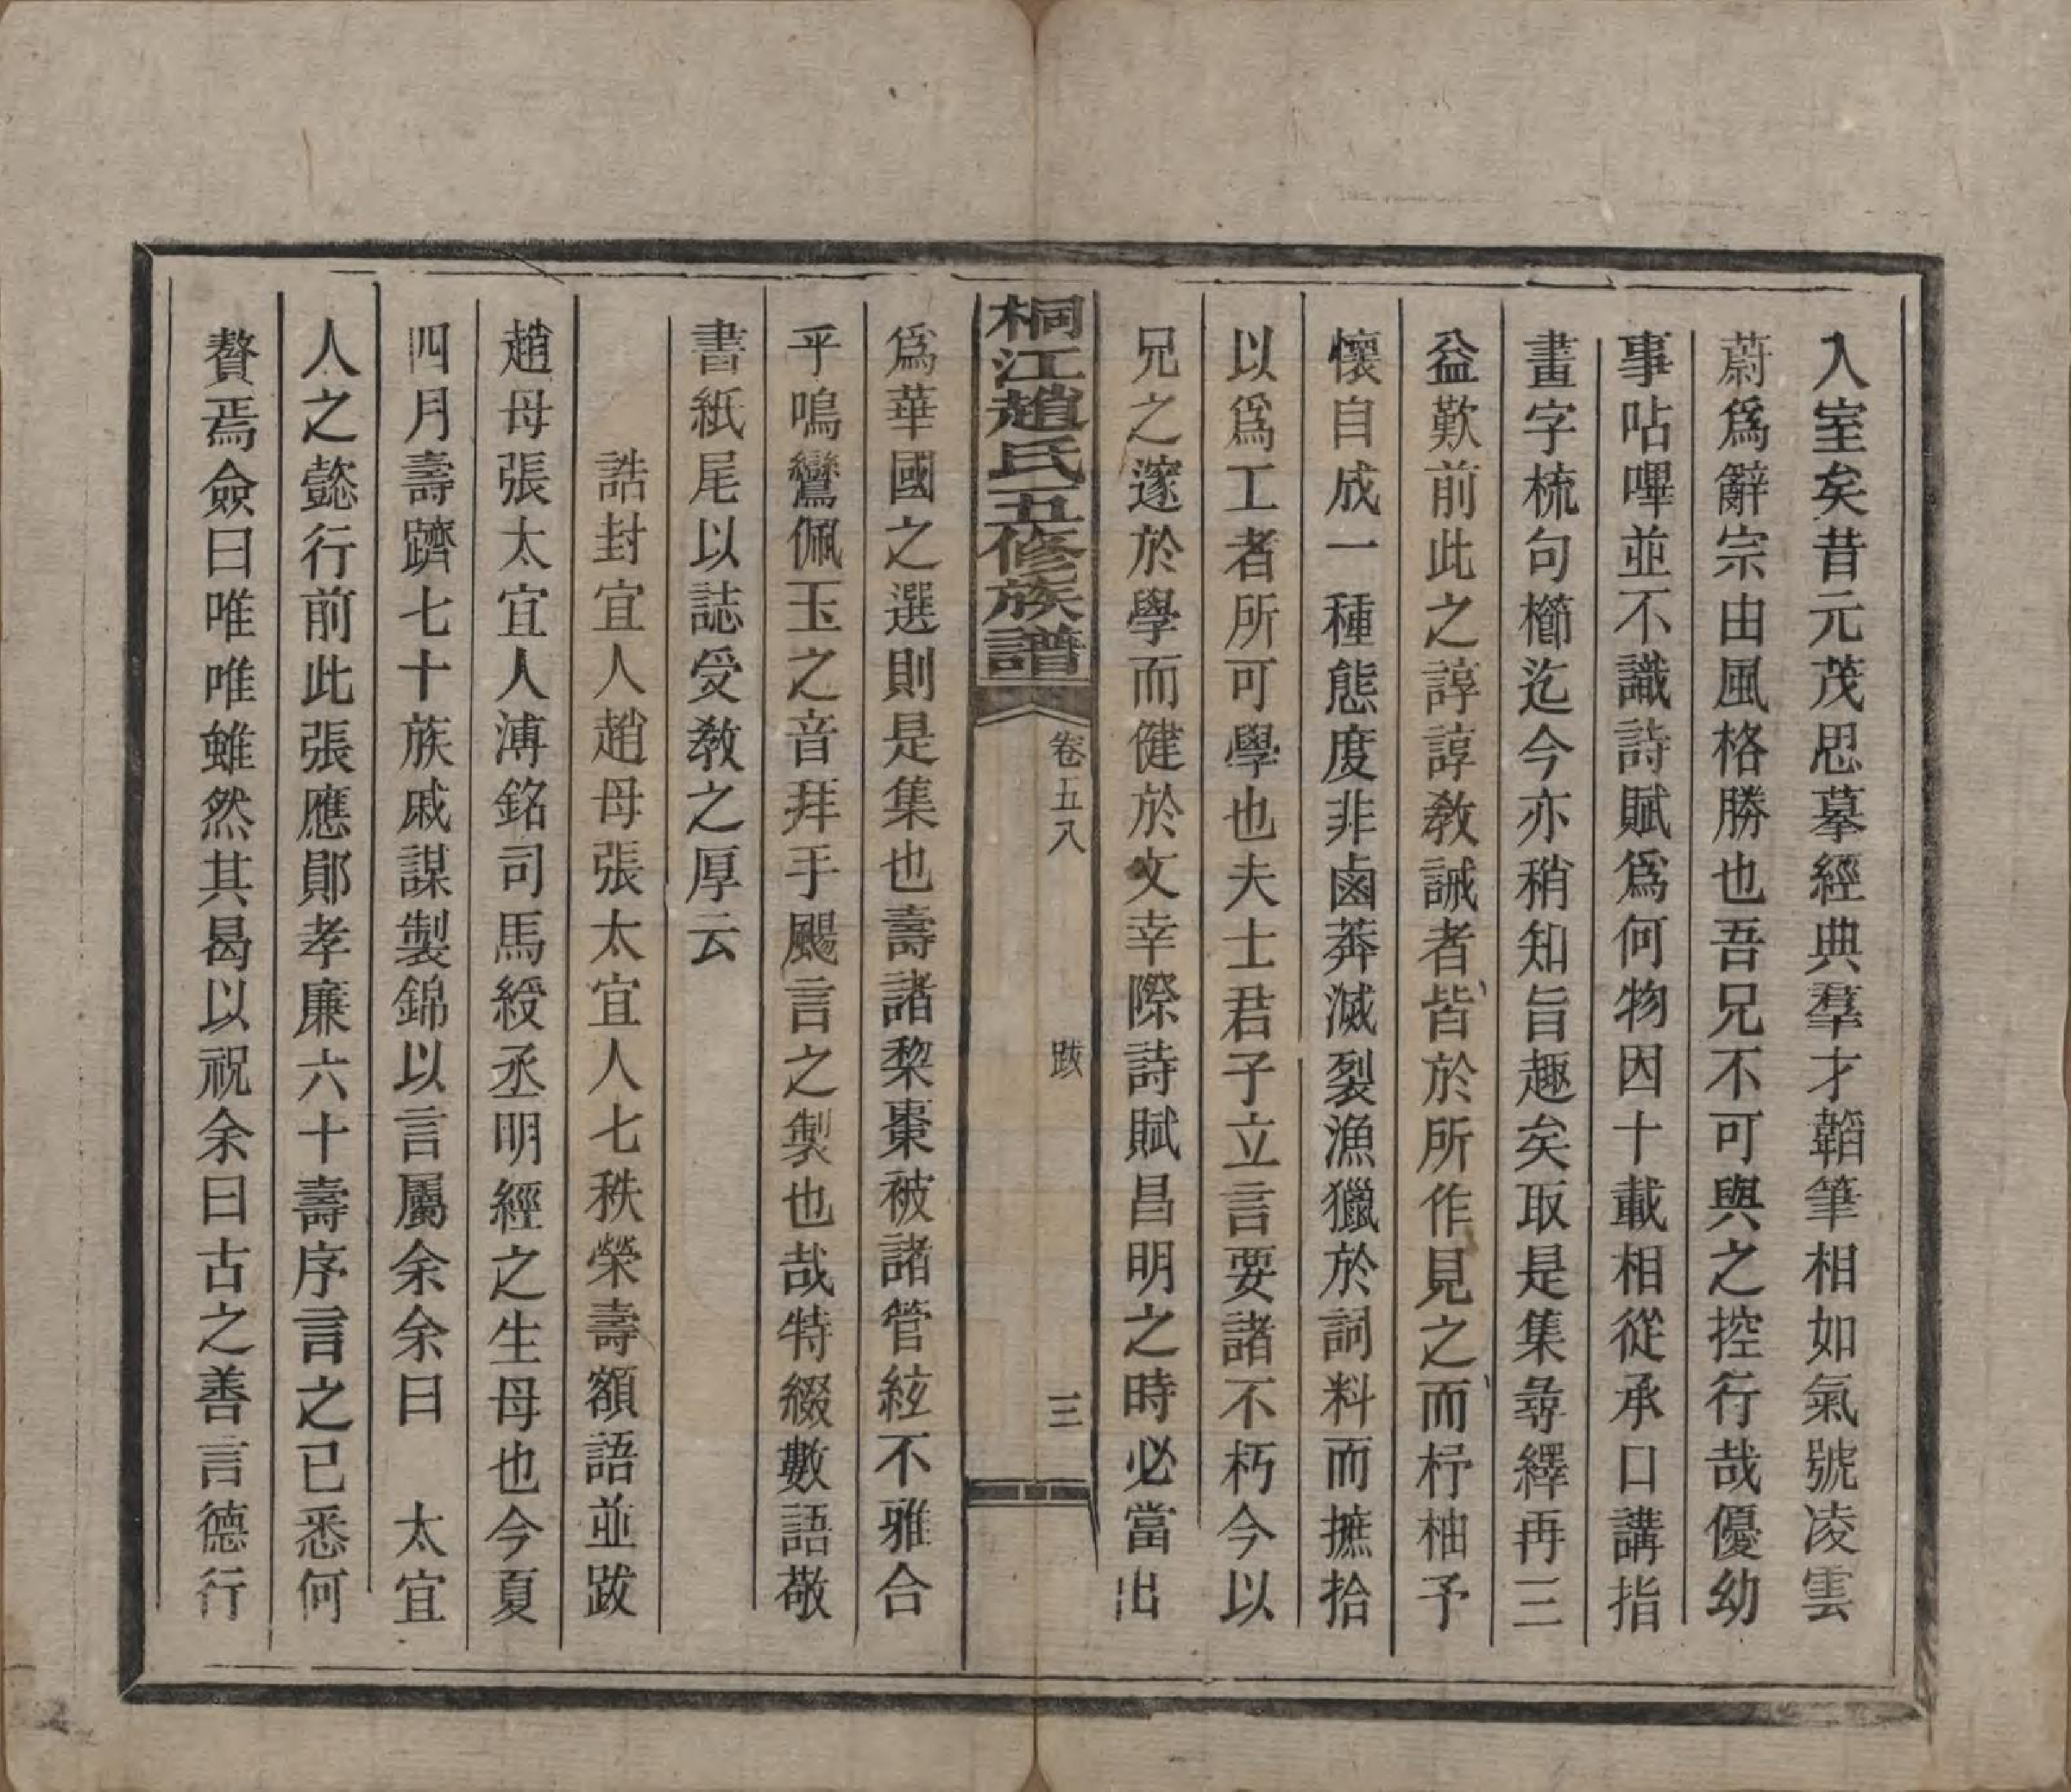 入室矣昔元茂思摹經典羣才韜筆相如氣號凌雲
蔚爲辭宗由風格勝也吾兄不可與之控行哉優幼
事呫嗶並不識詩賦爲何物因十載相從承口講指
畫字梳句櫛迄今亦稍知旨趣矣取是集尋繹再三
益歎前此之諄諄敎誡者皆於所作見之而杼柚予
懷自成一種態度非鹵莽滅裂漁獵於詞料而摭拾
以爲工者所可學也夫士君子立言要諸不朽今以
兄之邃於學而健於文幸際詩賦昌明之時必當出
桐江趙氏五修族譜
卷五八
跋
三
爲華國之選則是集也壽諸棃棗被諸管絃不雅合
乎鳴鸞佩玉之音拜手颺言之製也哉特綴數語敬
書紙尾以誌受敎之厚云
誥封宜人趙母張太宜人七秩榮壽額語並跋
趙母張太宜人溥銘司馬綬丞明經之生母也今夏
四月壽躋七十族戚謀製錦以言屬余余曰　太宜
人之懿行前此張應鄖孝廉六十壽序言之已悉何
贅焉僉曰唯唯雖然其曷以祝余曰古之善言德行